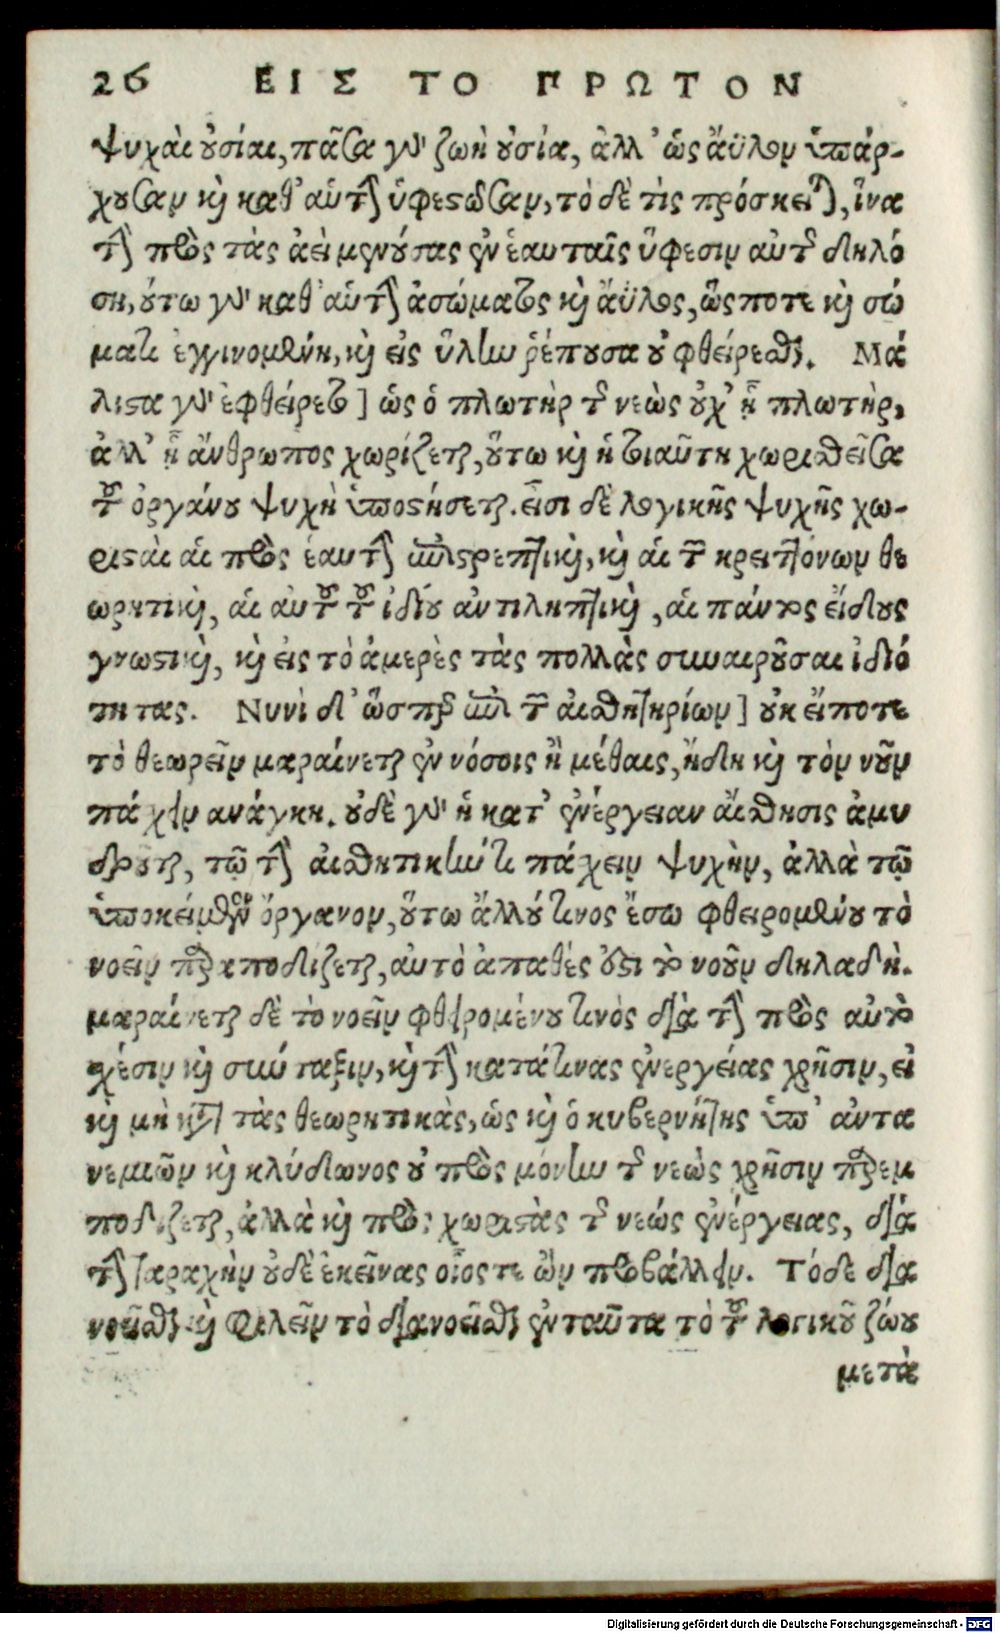 26 ΕΙΣ ΤΟ ΠΡΩΤΟΝ
ψυχαὶ οὐσίαι, πᾶσα γὰρ ζωὴ οὐσία, ἀλλ' ὡς ἄϋλον ὑπάρ-
χουσαν καὶ καθ' αὑτὴν ὑφεστῶσαν, τὸ δὲ τὶς πρόσκειται, ἵνα
τὴν πρὸς τὰς ἀεὶ μενούσας ἐν ἑαυταῖς ὕφεσιν αὐτοῦ δηλώ
ση, οὕτω γὰρ καθ' αὑτὴν ἀσώματος καὶ ἄϋλος, ὥς ποτε καὶ σώ
ματι ἐγγινομένη, καὶ εἰς ὕλην ῥέπουσα οὐ φθείρεσθαι. Μά
λιστα γὰρ ἐφθείρετο] ὡς ὁ πλωτὴρ τοῦ νεὼς οὐχ' ᾗ πλωτὴρ,
ἀλλ' ᾗ ἄνθρωπος χωρίζεται, οὕτω καὶ ἡ τοιαύτη χωρισθεῖσα
τοῦ ὀργάνου ψυχὴ ὑποστήσεται. εἰσὶ δὲ λογικῆς ψυχῆς χω-
ρισταὶ αἱ πρὸς ἑαυτὴν ἐπιστρεπτικαὶ, καὶ αἱ τῶν κρειττόνων θε
ωρητικαὶ, αἱ αὐτοῦ τοῦ ἰδίου αντιληπτικαὶ, αἱ παντὸς εἴδους
γνωστικαὶ, καὶ εἰς τὸ ἀμερὲς τὰς πολλὰς συναιροῦσαι ἰδιό
τητας. Νυνὶ δ' ὥσπερ ἐπὶ τῶν αἰσθητηρίων] οὐκ εἴποτε
τὸ θεωρεῖν μαραίνεται ἐν νόσοις ἢ μέθαις, ἤδη καὶ τὸν νοῦν
πάσχειν ανάγκη. οὐδὲ γὰρ ἡ κατ' ἐνέργειαν αἴσθησις ἀμυ
δροῦται, τῷ τὴν αἰσθητικήν τι πάσχειν ψυχὴν, ἀλλὰ τῷ
ὑποκείμενον ὄργανον, οὕτω ἄλλού τινος ἔσω φθειρομένου τὸ
νοεῖν παραποδίζεται, αυτὸ ἀπαθές ἐστι τὸ νοοῦν δηλαδή.
μαραίνεται δὲ τὸ νοεῖν φθειρομένου τινὸς διὰ τὴν πρὸς αὐτὸ
σχέσιν καὶ σύνταξιν, καὶ τὴν κατά τινας ἐνεργείας χρῆσιν, εἰ
καὶ μὴ κατὰ τὰς θεωρητικὰς, ὡς καὶ ὁ κυβερνήτης ὑπ' ἀντα
νεμιῶν καὶ κλύδωνος οὐ πρὸς μόνην τοῦ νεὼς χρῆσιν παρεμ
ποδίζεται, ἀλλὰ καὶ πρὸς χωριστὰς τοῦ νεώς ἐνέργειας, διὰ
τὴν ταραχὴν οὐδὲ ἐκεῖνας οἷος τε ὢν προβάλλειν. Τόδε δια
νοεῖσθαι καὶ φιλεῖν τὸ διανοεῖσθαι ἐνταῦτα τὸ τοῦ λογικοῦ ζώου
μετὰ
Digitalisierung gefördert durch die Deutsche Forschungsgemeinschaft - DFG